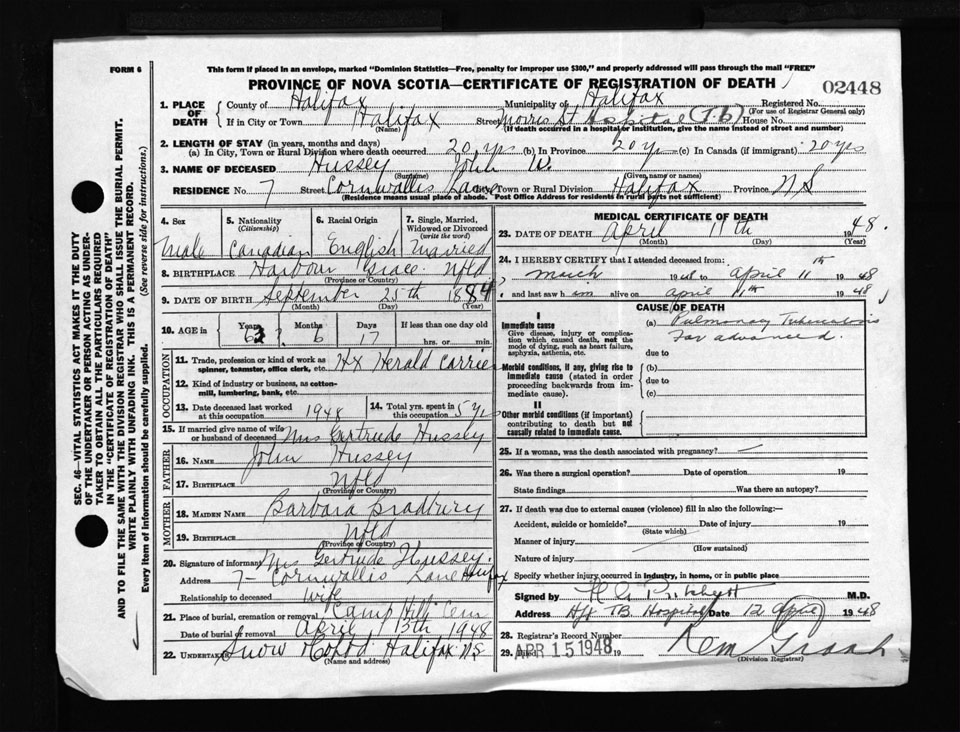 FORM 6
This form if placed in an envelope, marked "Dominion Statistics—Free, penalty for improper use $300," and properly addressed will pass through the mail "FREE"
PROVINCE OF NOVA SCOTIA—CERTIFICATE OF REGISTRATION OF DEATH
02448
1. PLACE OF DEATH
County of Halifax Municipality of Halifax Registered No.
(For use of Registrar General only)
If in City or Town Halifax Street Morris St Hospital (T.b) House No.
(Name) (If death occurred in a hospital or institution, give the name instead of street and number)
2. LENGTH OF STAY (in years, months and days)
(a) In City, Town or Rural Division where death occurred 20 yrs (b) In Province 20 yrs (c) In Canada (if immigrant) 20 yrs
3. NAME OF DECEASED Hussey John W.
(Surname) (Given name or names)
RESIDENCE No. 7 Street Cornwallis Lane City, Town or Rural Division Halifax Province N S
(Residence means usual place of abode. Post Office Address for residents in rural parts not sufficient)
4. Sex Male
5. Nationality (Citizenship) Canadian
6. Racial Origin English
7. Single, Married, Widowed or Divorced (write the word) Married
8. BIRTHPLACE Harbour Grace Nfld
(Province or Country)
9. DATE OF BIRTH September 25th 1884
(Month) (Day) (Year)
10. AGE in Years 63 Months 6 Days 17 If less than one day old
hrs. or min.
OCCUPATION
11. Trade, profession or kind of work as spinner, teamster, office clerk, etc. Hx Herald Carrier
12. Kind of industry or business, as cotton-mill, lumbering, bank, etc.
13. Date deceased last worked at this occupation 1948
14. Total yrs. spent in this occupation 5 yrs
15. If married give name of wife or husband of deceased Mrs Gertrude Hussey
FATHER
16. NAME John Hussey
17. BIRTHPLACE Nfld
(Province or Country)
MOTHER
18. MAIDEN NAME Barbara Bradbury
19. BIRTHPLACE Nfld
(Province or Country)
20. Signature of informant Mrs Gertrude Hussey.
Address 7- Cornwallis Lane Halifax
Relationship to deceased wife
21. Place of burial, cremation or removal Camp Hill Cem
Date of burial or removal April 13th 1948
22. UNDERTAKER Snow & Co Ltd Halifax N.S.
(Name and address)
MEDICAL CERTIFICATE OF DEATH
23. DATE OF DEATH April 11th 1948.
(Month) (Day) (Year)
24. I HEREBY CERTIFY that I attended deceased from:
1948 to April 11th 1948
and last saw him alive on April 11th 1948
CAUSE OF DEATH
I
Immediate cause
Give disease, injury or complication which caused death, not the mode of dying, such as heart failure, asphyxia, asthenia, etc.
(a) Pulmonary Tuberculosis
Far advanced.
due to
Morbid conditions, if any, giving rise to immediate cause (stated in order proceeding backwards from immediate cause).
(b)
due to
(c)
II
Other morbid conditions (if important) contributing to death but not causally related to immediate cause.
25. If a woman, was the death associated with pregnancy?
26. Was there a surgical operation? Date of operation 19
State findings Was there an autopsy?
27. If death was due to external causes (violence) fill in also the following:—
Accident, suicide or homicide? Date of injury 19
(State which)
Manner of injury
(How sustained)
Nature of injury
Specify whether injury occurred in industry, in home, or in public place
Signed by M.D.
Address Hfx TB. Hospital Date 12 April 1948
28. Registrar's Record Number
29. Filed APR 15 1948 19
(Division Registrar)
SEC. 46—VITAL STATISTICS ACT MAKES IT THE DUTY
OF THE UNDERTAKER OR PERSON ACTING AS UNDER-
TAKER TO OBTAIN ALL THE PARTICULARS REQUIRED
IN THE "CERTIFICATE OF REGISTRATION OF DEATH"
AND TO FILE THE SAME WITH THE DIVISION REGISTRAR WHO SHALL ISSUE THE BURIAL PERMIT.
WRITE PLAINLY WITH UNFADING INK. THIS IS A PERMANENT RECORD.
Every item of information should be carefully supplied. (See reverse side for instructions.)